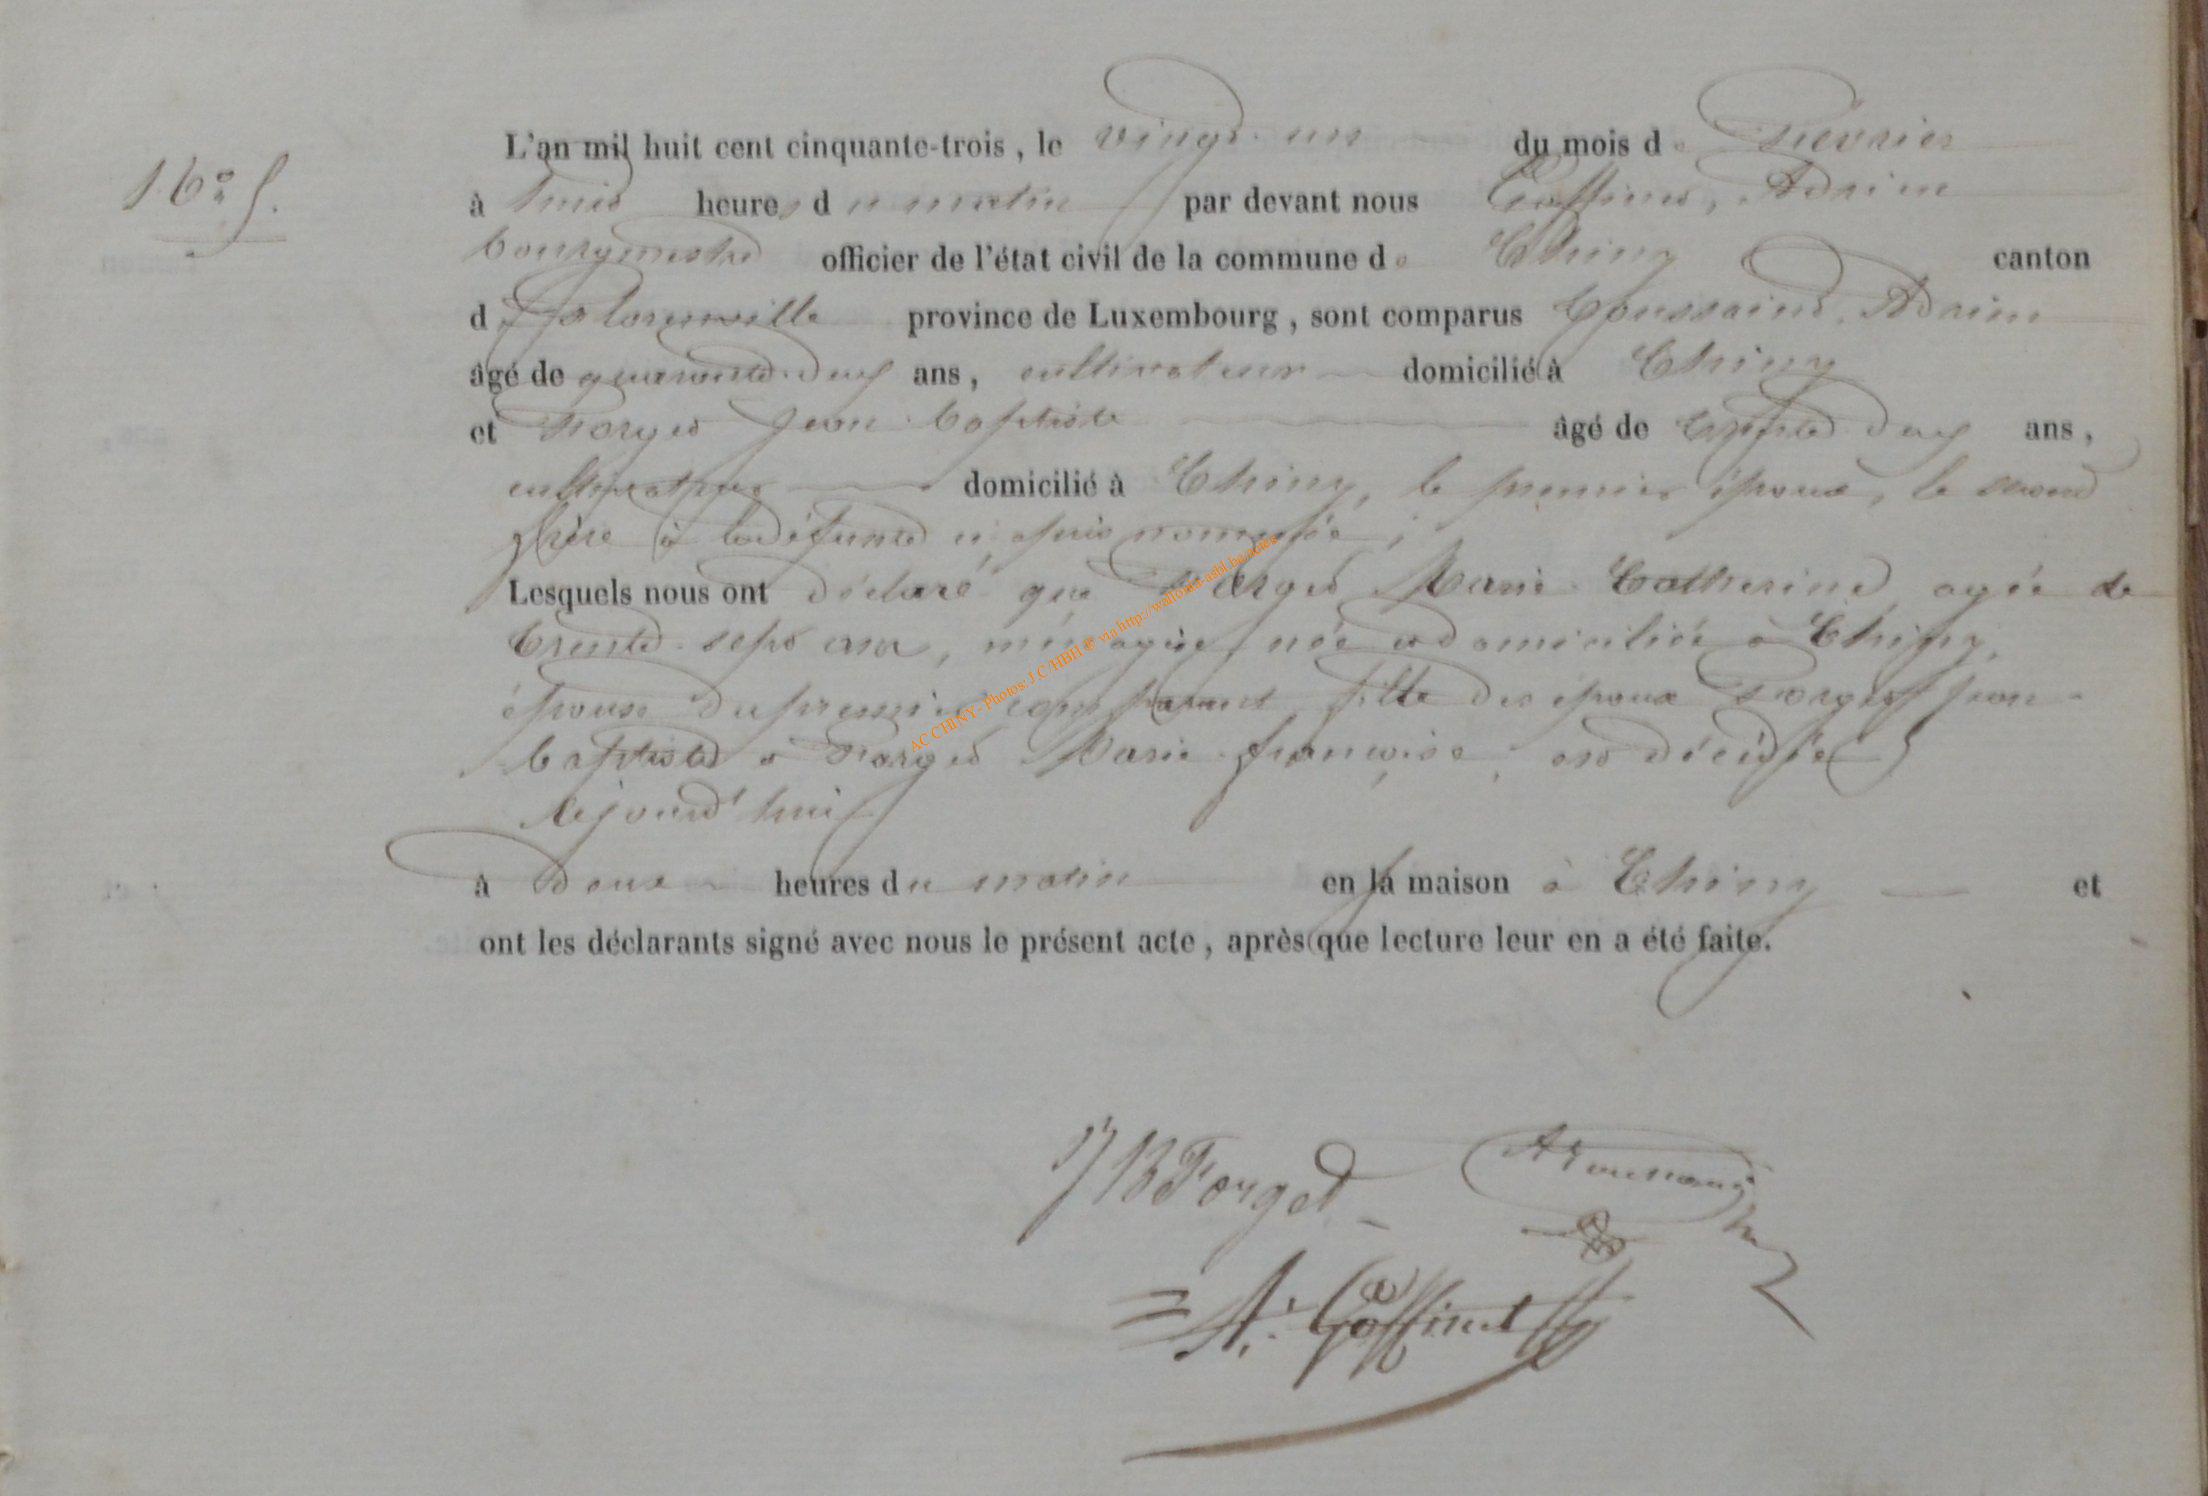 16e f.
L'an mil huit cent cinquante-trois, le vingt-un du mois de Février
à huit heures du matin par devant nous Goffinet, Adrien
bourgmestre officier de l'état civil de la commune de Chiny canton
de Florenville province de Luxembourg, sont comparus Toussaint, Adrien
âgé de quarante-deux ans, cultivateur domicilié à Chiny
et Forget Jean-baptiste âgé de trente-deux ans,
cultivateur domicilié à Chiny, le premier époux, le second
frère à la défunte ci-après nommée;
Lesquels nous ont déclaré que Forget, Marie-Catherine, agée de
trente-sept ans, ménagère, née et domiciliée à Chiny,
épouse du premier comparant, fille des époux Forget, jean-
baptiste et Forget Marie-françoise, est décédée
aujourd'hui
à deux heures du matin en la maison à Chiny et
ont les déclarants signé avec nous le présent acte, après que lecture leur en a été faite.
JB Forget A Toussaint
A. Goffinet
AC CHINY - Photos: J.C HBH @ via http://wallonia-asbl.be/actes